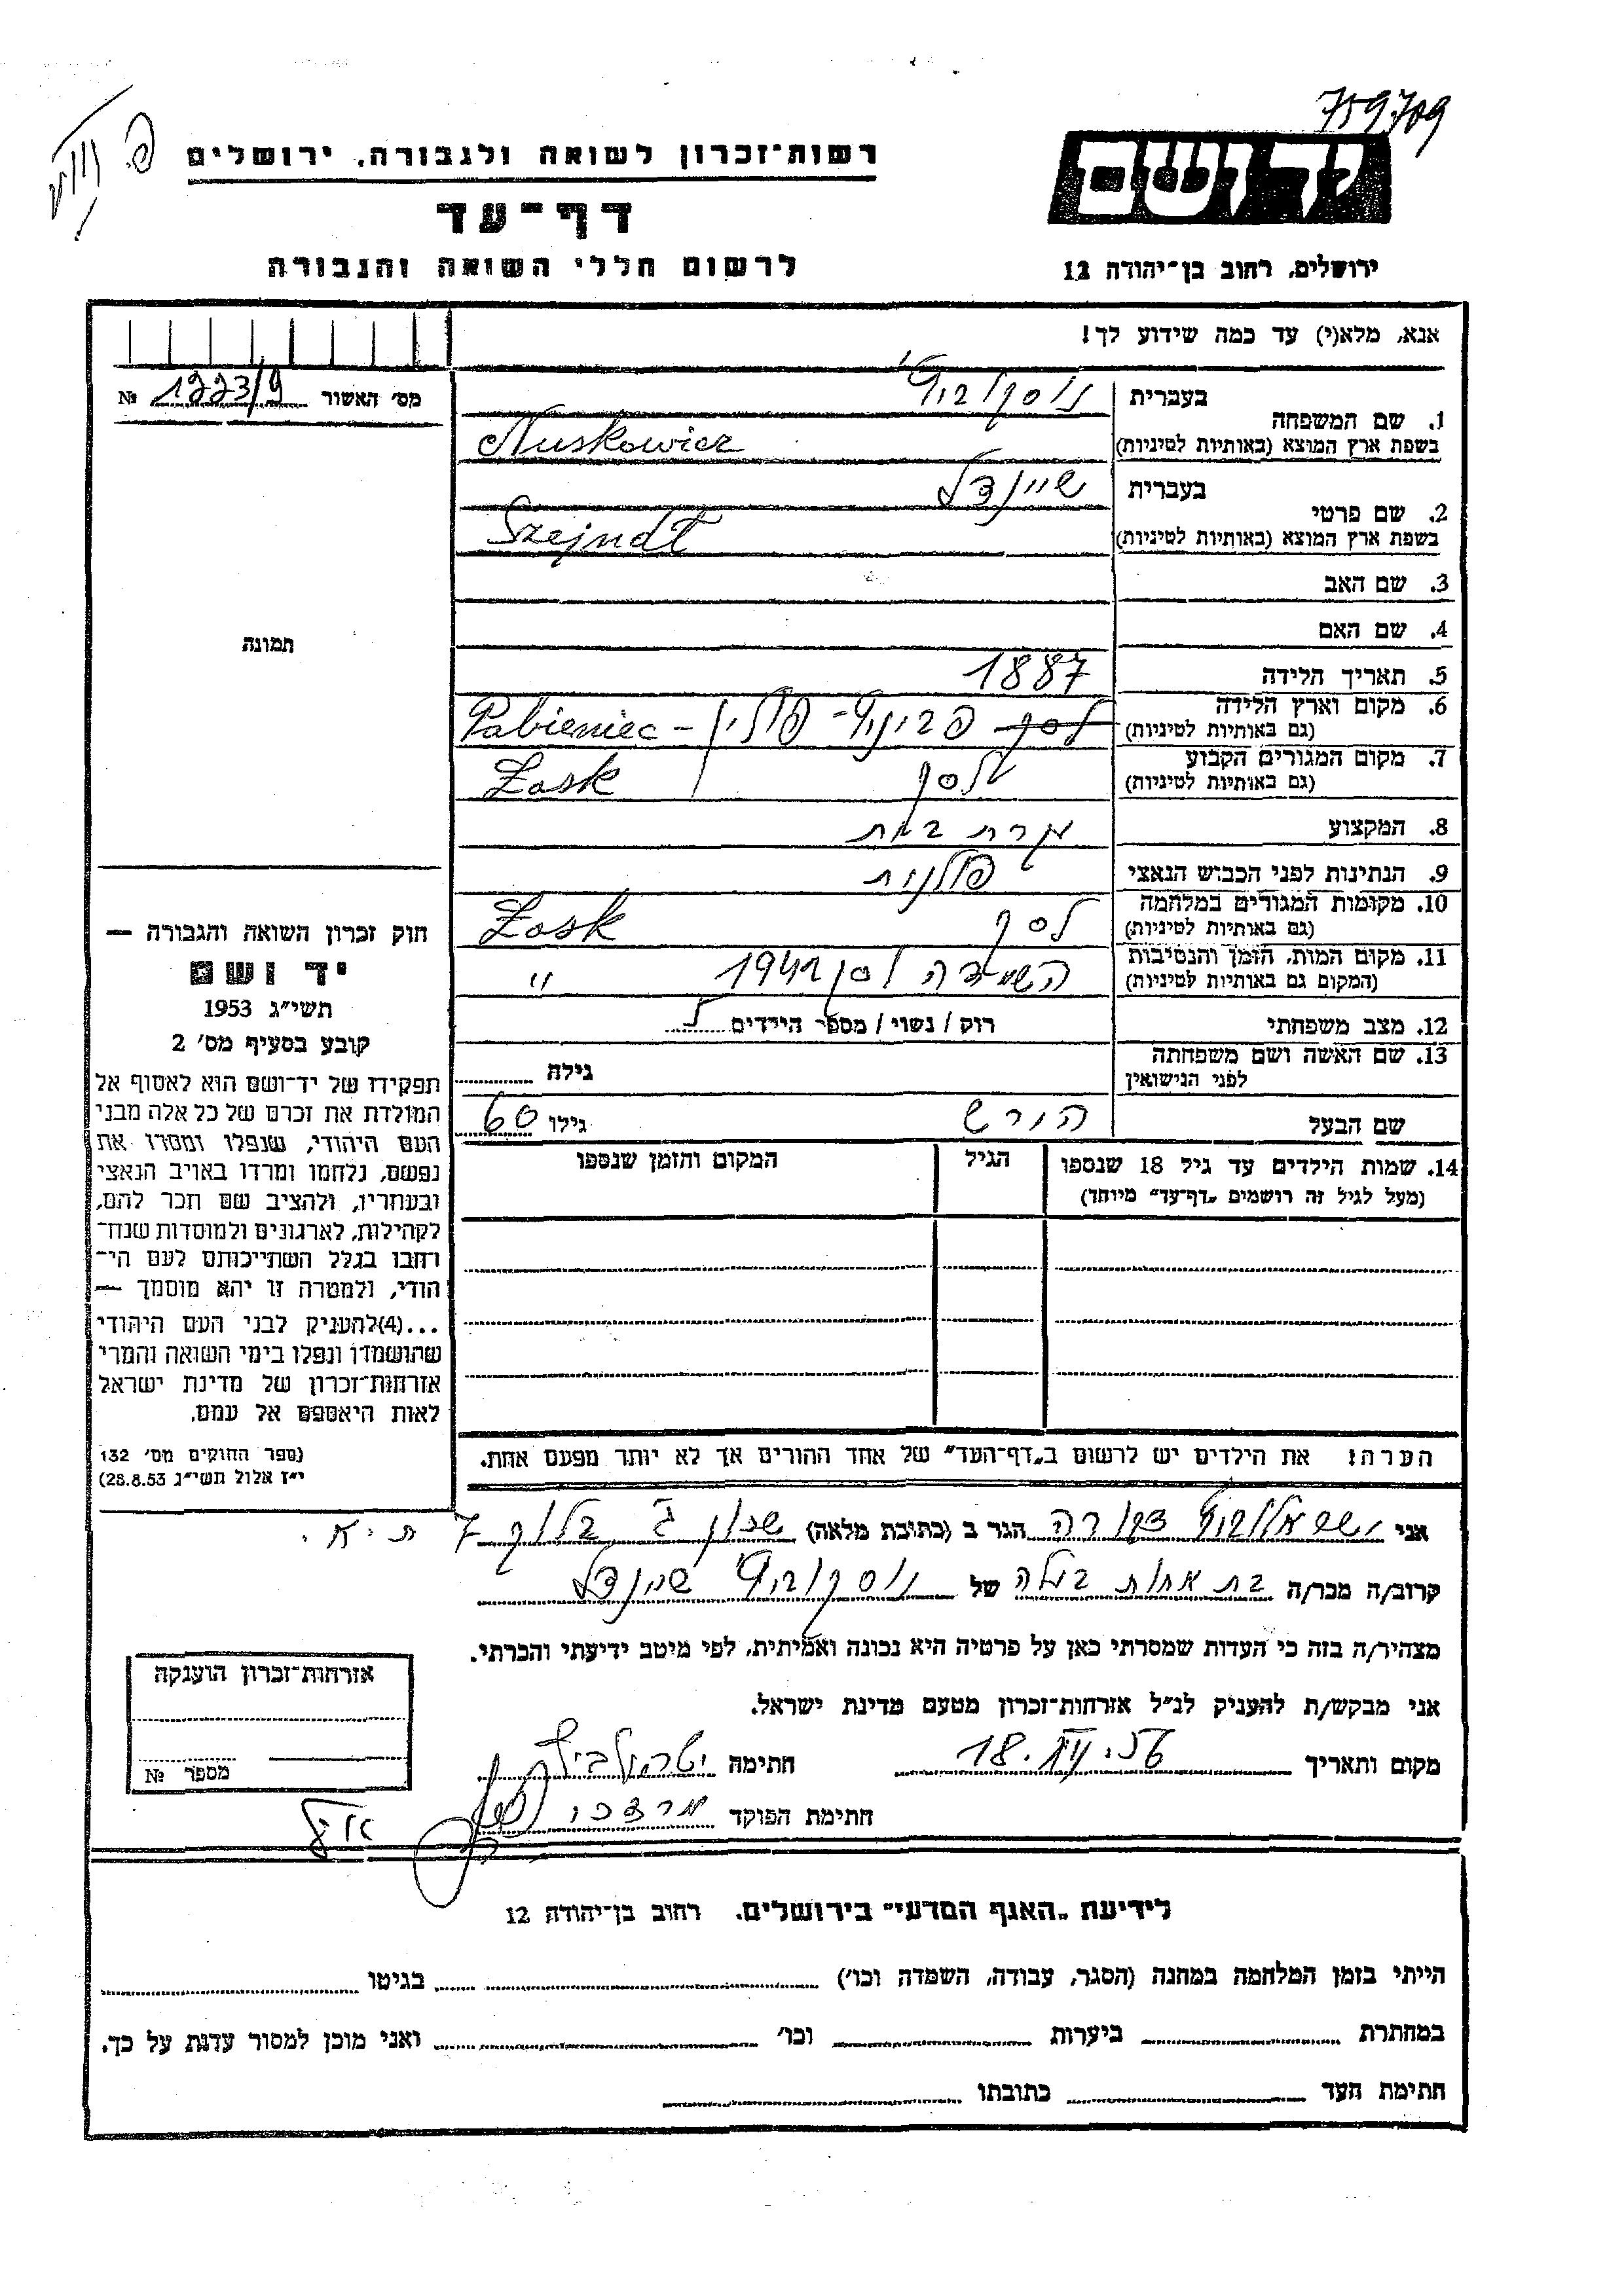 759.709
רשות־זכרון לשואה ולגבורה, ירושלים
יד ושם
דף־עד
לרשום חללי השואה והגבורה
ירושלים, רחוב בן־יהודה 12
אנא, מלא(י) עד כמה שידוע לך!
מס' האשור 1223/9 №
1. שם המשפחה
בעברית נוסקוביץ'
בשפת ארץ המוצא (באותיות לטיניות) Nuskowicz
2. שם פרטי
בעברית שיינדל
בשפת ארץ המוצא (באותיות לטיניות) Szejndl
3. שם האב
4. שם האם
תמונה
5. תאריך הלידה 1887
6. מקום וארץ הלידה
(גם באותיות לטיניות) פביניץ - פולין - Pabieniec
7. מקום המגורים הקבוע
(גם באותיות לטיניות) לסק Łask
8. המקצוע עקרת בית
9. הנתינות לפני הכבוש הנאצי פולנית
10. מקומות המגורים במלחמה
(גם באותיות לטיניות) לסק Łask
11. מקום המות, הזמן והנסיבות
(המקום גם באותיות לטיניות) השמדה לסק 1942 "
12. מצב משפחתי רוק / נשוי / מספר הילדים
13. שם האשה ושם משפחתה
לפני הנישואין גילה
שם הבעל הירש גילו 60
14. שמות הילדים עד גיל 18 שנספו
(מעל לגיל זה רושמים „דף־עד" מיוחד)
הגיל
המקום והזמן שנספו
חוק זכרון השואה והגבורה —
יד ושם
תשי"ג 1953
קובע בסעיף מס' 2
תפקידו של יד־ושם הוא לאסוף אל
המולדת את זכרם של כל אלה מבני
העם היהודי, שנפלו ומסרו את
נפשם, נלחמו ומרדו באויב הנאצי
ובעוזריו, ולהציב שם וזכר להם,
לקהילות, לארגונים ולמוסדות שנח־
רבו בגלל השתייכותם לעם הי־
הודי, ולמטרה זו יהא מוסמך —
...(4)להעניק לבני העם היהודי
שהושמדו ונפלו בימי השואה והמרי
אזרחות־זכרון של מדינת ישראל
לאות היאספם אל עמם.
(ספר החוקים מס' 132
י"ז אלול תשי"ג 28.8.53)
הערה: את הילדים יש לרשום ב„דף־העד" של אחד ההורים אך לא יותר מפעם אחת.
אני ישראלוביץ דבורה הגר ב (כתובת מלאה) שכון ג' בלוק 7 ת"א.
קרוב/ה מכר/ה בת אחות בעלה של נוסקוביץ שיינדל
מצהיר/ה בזה כי העדות שמסרתי כאן על פרטיה היא נכונה ואמיתית, לפי מיטב ידיעתי והכרתי.
אני מבקש/ת להעניק לנ"ל אזרחות־זכרון מטעם מדינת ישראל.
מקום ותאריך 18. חתימה
חתימת הפוקד מרדכי
אזרחות־זכרון הוענקה
מספר №
לידיעת „האגף המדעי" בירושלים. רחוב בן־יהודה 12
הייתי בזמן המלחמה במחנה (הסגר, עבודה, השמדה וכו') בגיטו
במחתרת ביערות וכו' ואני מוכן למסור עדות על כך.
חתימת העד כתובתו